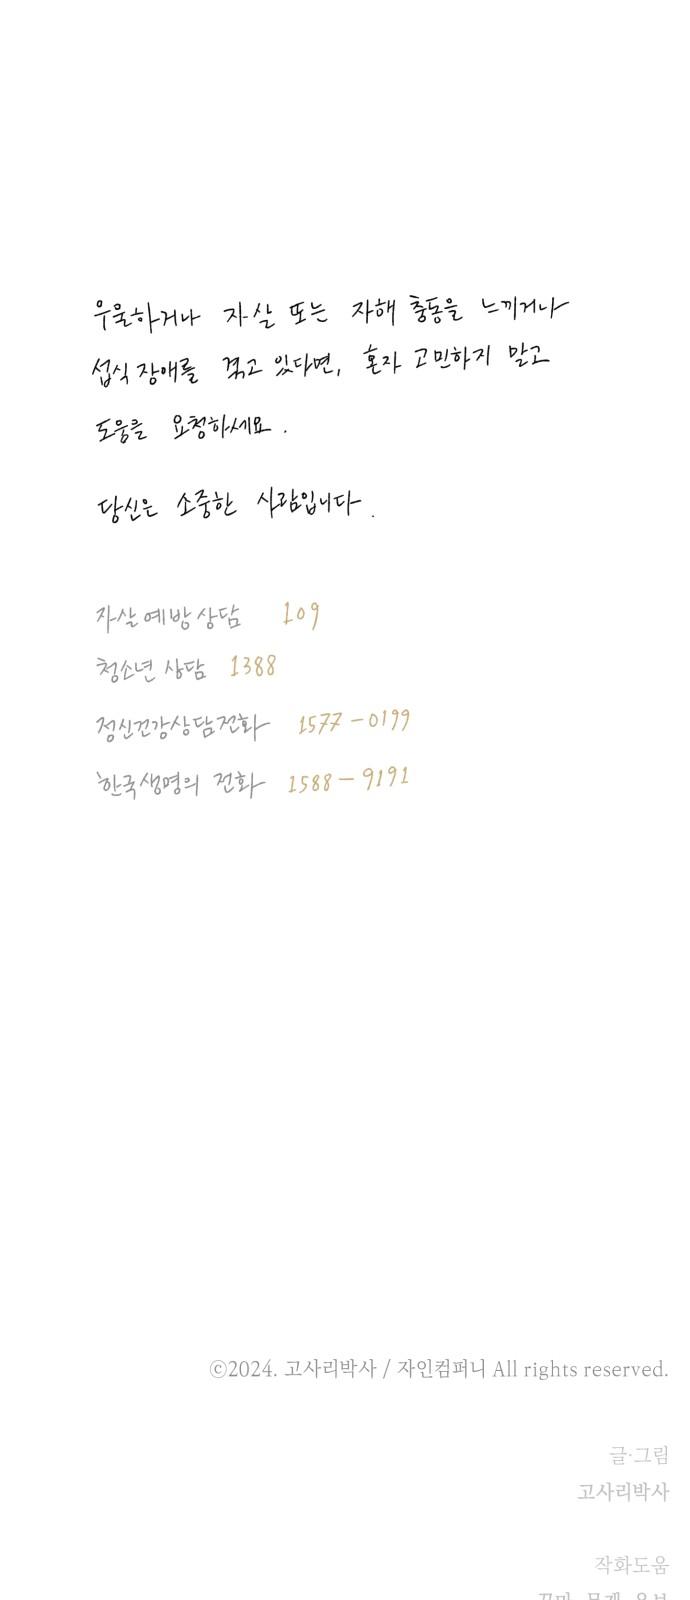 우울하거나 자살 또는 자해 충동을 느끼거나
섭식장애를 겪고 있다면, 혼자 고민하지 말고
도움을 요청하세요.
당신은 소중한 사람입니다.
자살예방상담 109
청소년 상담 1388
정신건강상담전화 1577-0199
한국생명의 전화 1588-9191
©2024. 고사리박사 / 자인컴퍼니 All rights reserved.
글·그림
고사리박사
작화도움